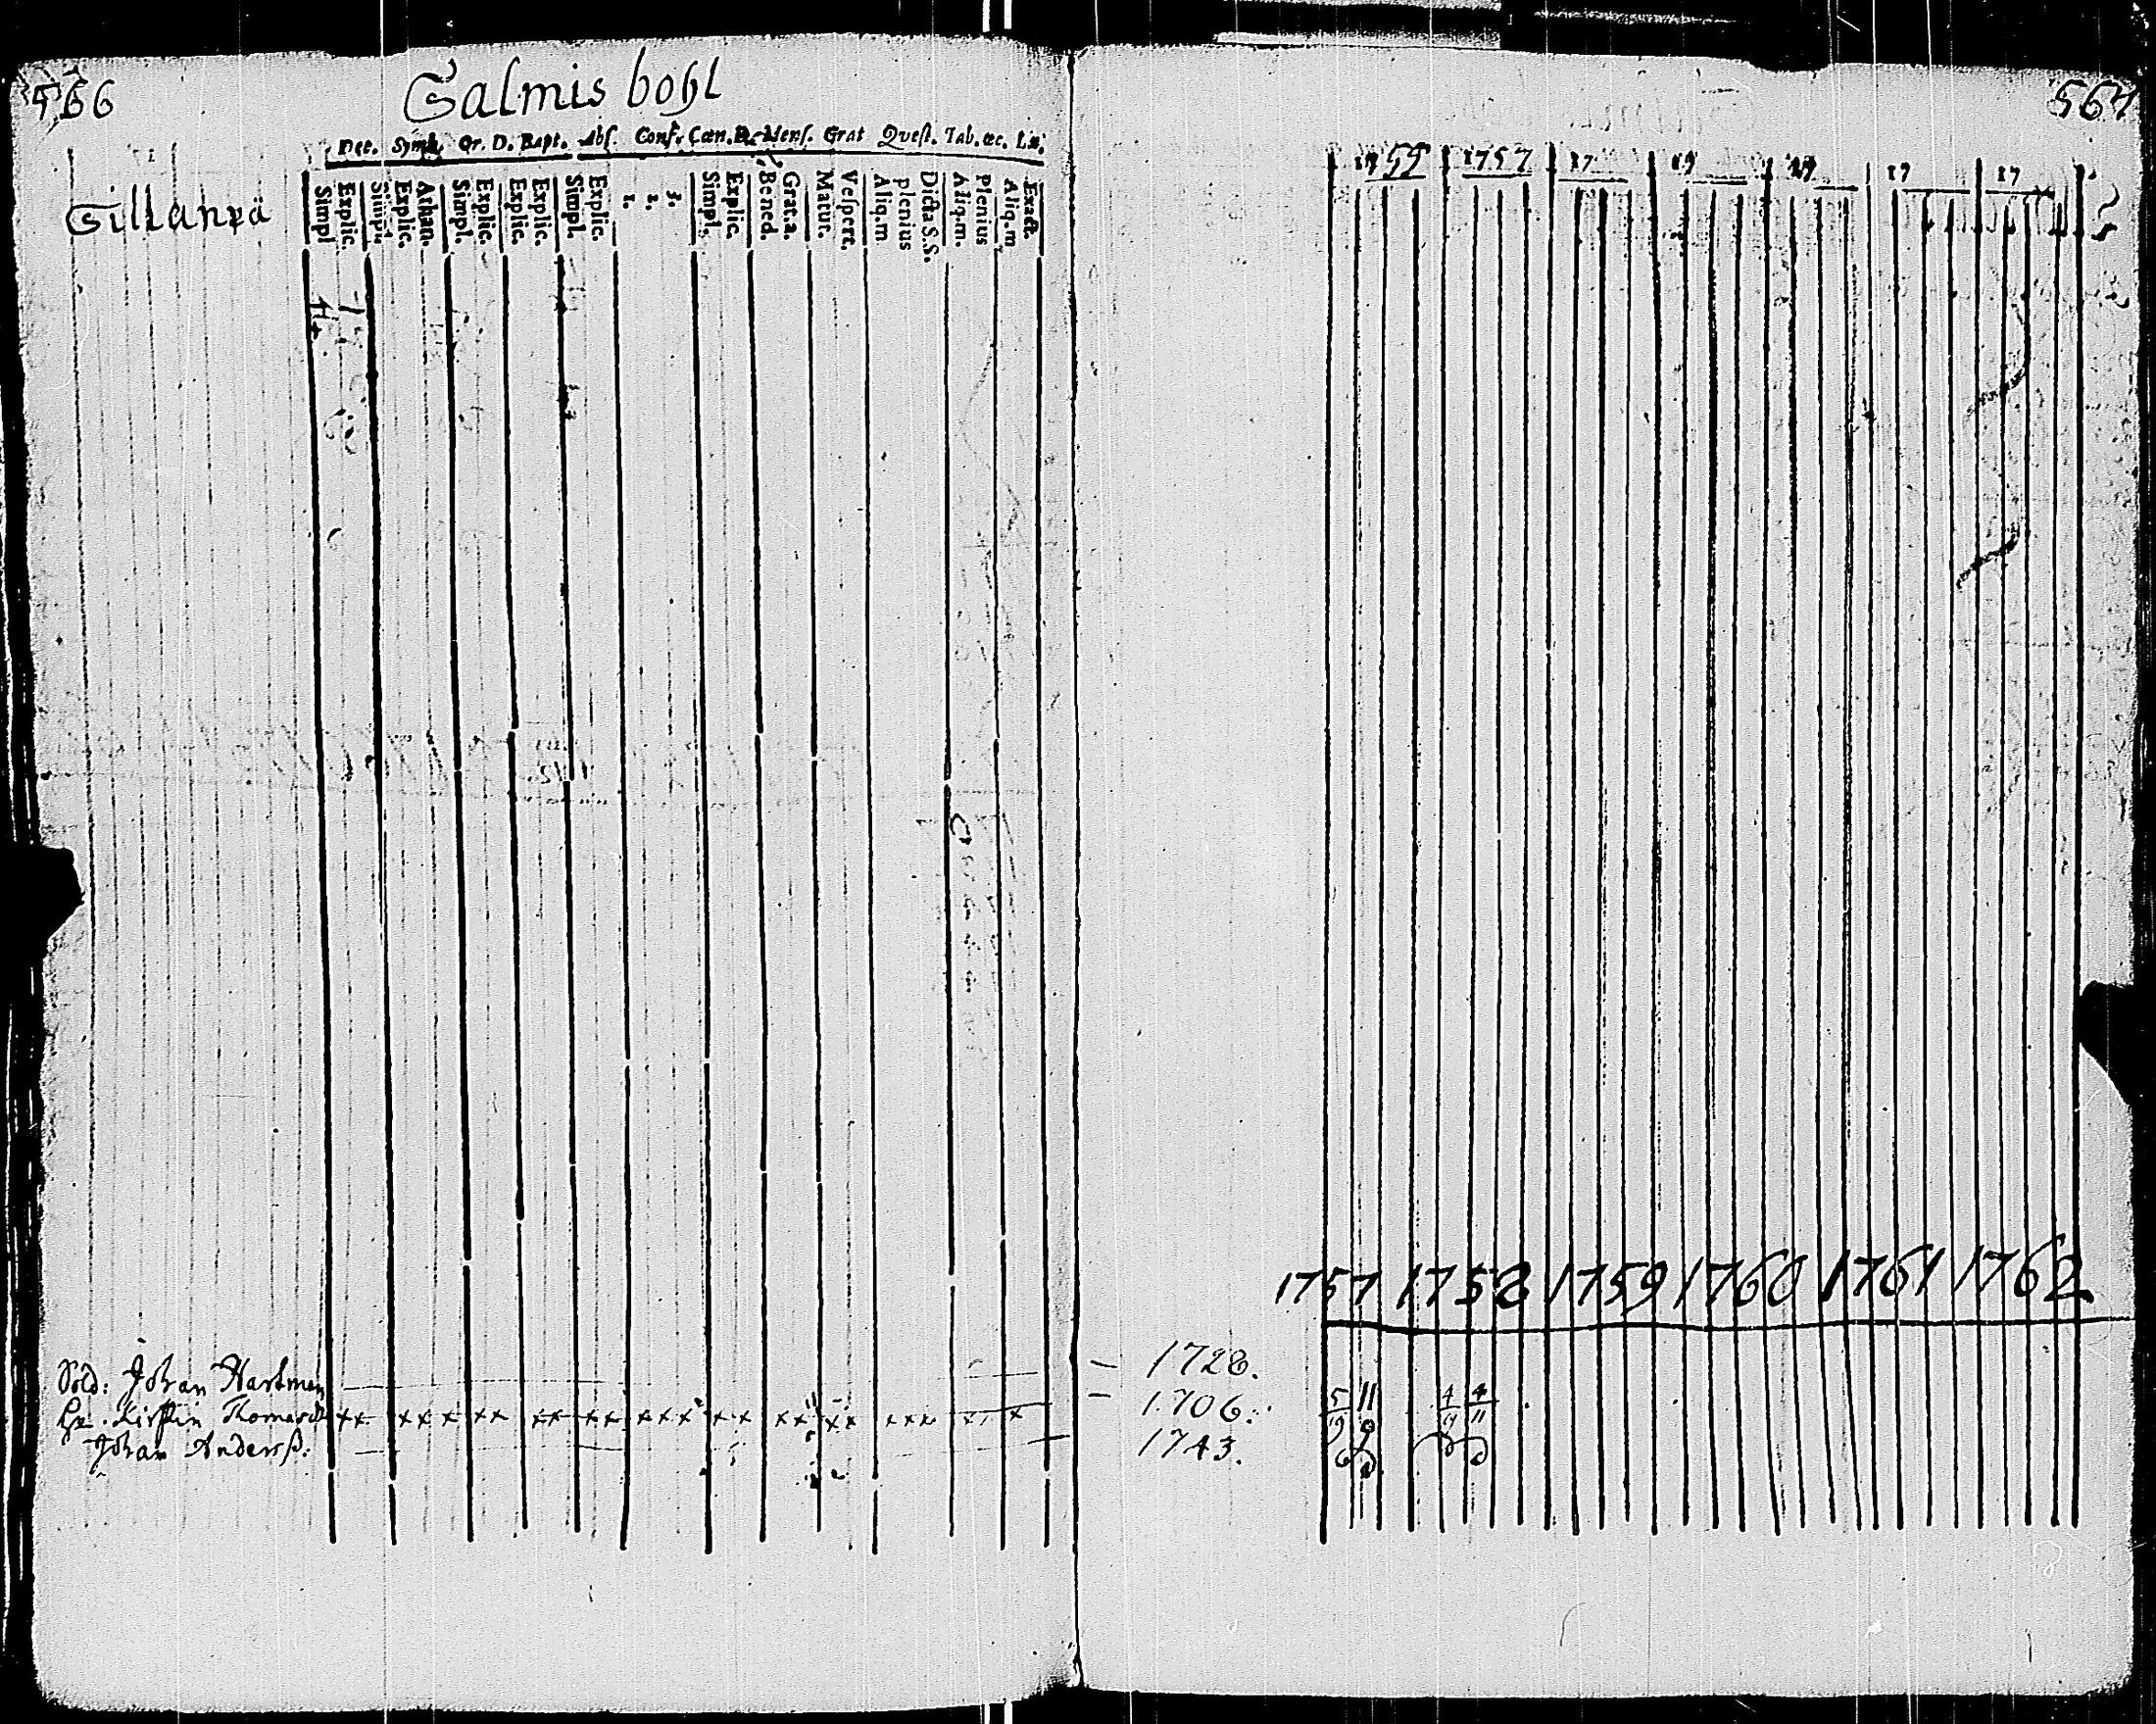 566
Salmis bohl
Dec. Symb. Or. D. Bapt. Abs. Conf. Cœn. D. Mens. Grat Quest. Tab. œc.
Sillanpä
Simpl
Explic.
Simpl.
Explic.
Athan.
Simpl.
Explic.
Explic.
Explic.
Simpl.
Explic.
1.
2.
3.
Simpl.
Explic.
Bened.
Grat. a.
Matut.
Vespert.
Aliq.m
plenius
Dicta S.S.
Aliq.m.
Plenius
Aliq.m
Exact.
Sold: Johan Hartman
Hr. Kirstin Thomasdr x x x x x x x x x x x x x x x x x x x x x x x x x x
Johan Anderss:
1755 1757 17 17 17 17 17
1757 1758 1759 1760 1761 1762
– 1728.
– 1706. 5/19 11/9 4/9 4/11
1743.